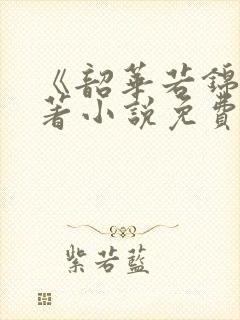 《韶華若錦
著小說免費
紫若藍